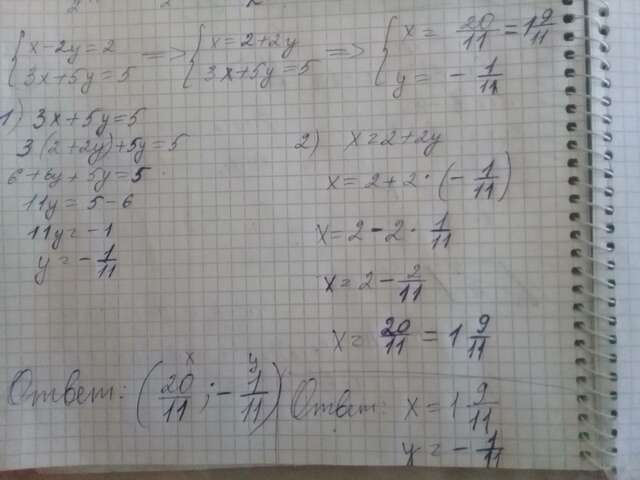 { x-2y=2 => { x=2+2y => { x= 20/11 = 1 9/11
{ 3x+5y=5 { 3x+5y=5 { y= - 1/11
1) 3x+5y=5
3(2+2y)+5y=5
6+6y+5y=5
11y=5-6
11y=-1
y=-1/11
2) x=2+2y
x=2+2·(-1/11)
x=2-2·1/11
x=2-2/11
x=20/11=1 9/11
x y
Ответ: (20/11; -1/11)
Ответ: x=1 9/11
y=-1/11